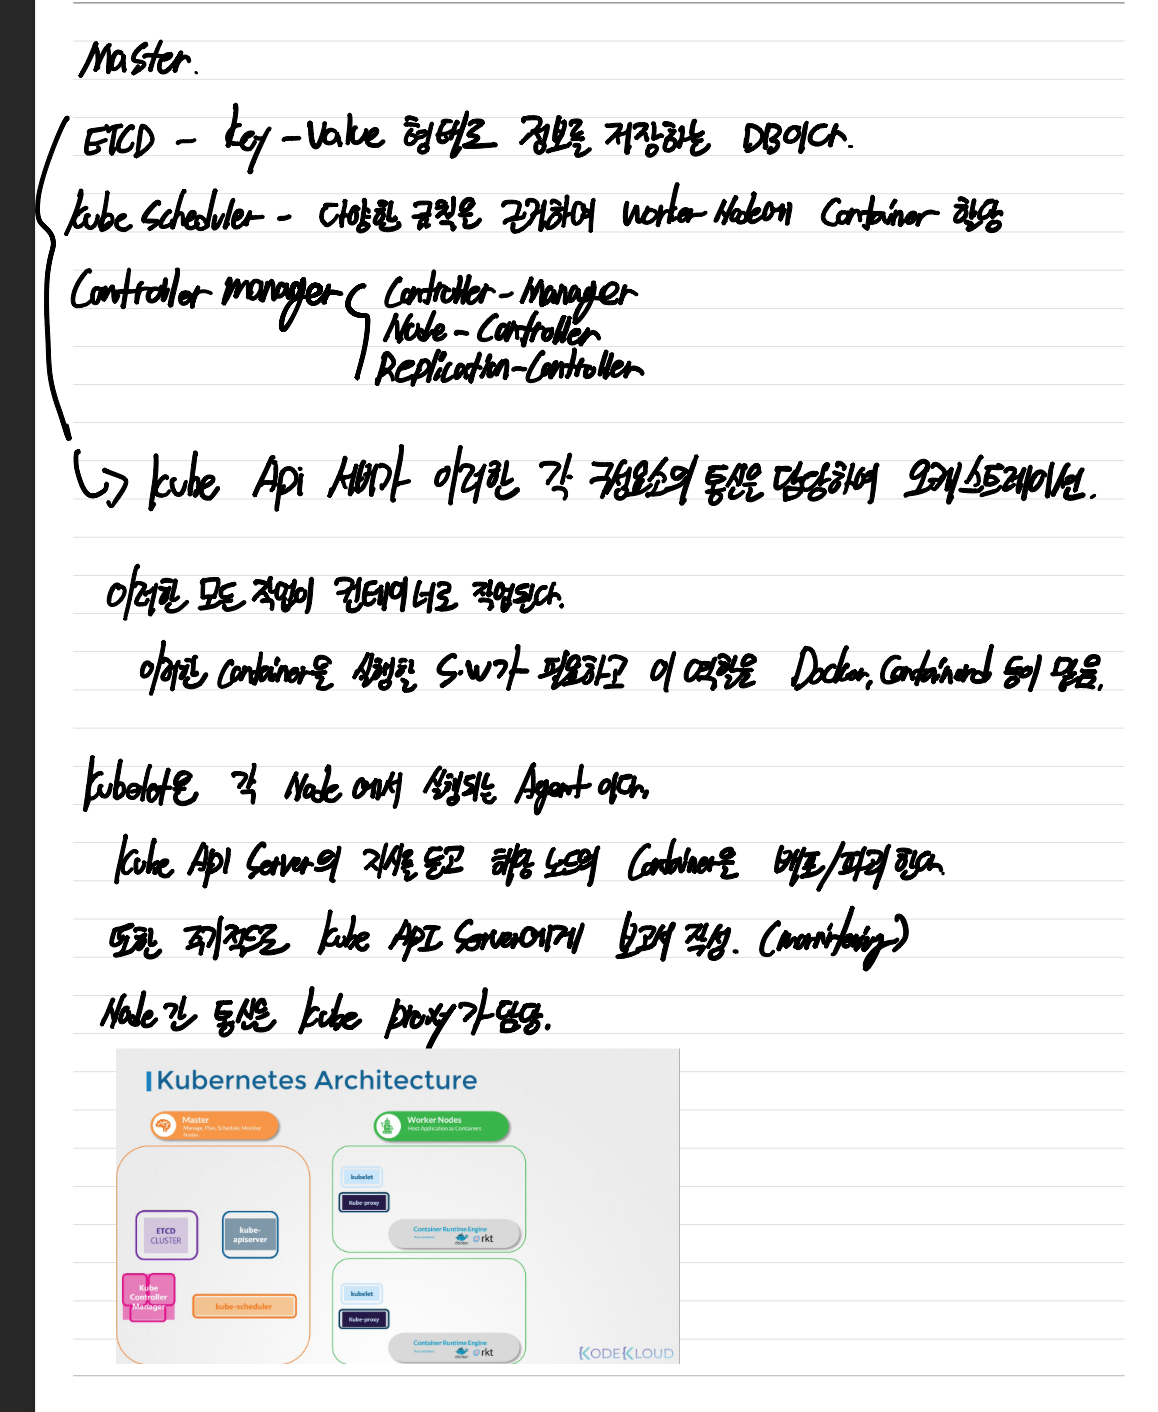 Master.
ETCD - key-Value 형태로 정보를 저장하는 DB이다.
kube Scheduler - 다양한 규칙을 근거하여 Worker Node에 Container 할당
Controller manager
Controller-Manager
Node-Controller
Replication-Controller
↳ kube Api 서버가 이러한 각 구성요소의 통신을 담당하여 오케스트레이션.
이러한 모든 작업이 컨테이너로 작업된다.
이러한 Container을 실행할 S.W가 필요하고 이 역할을 Docker, Containerd 등이 맡음.
kubelet은 각 Node에서 실행되는 Agent이다.
kube API Server의 지시를 듣고 해당 노드의 Container을 배포/파괴 한다
또한 주기적으로 kube API Server에게 보고서 작성. (monitering)
Node간 통신은 kube proxy가 담당.
Kubernetes Architecture
Master
Manage, Plan, Schedule, Monitor
Nodes
Worker Nodes
Host Application as Containers
kubelet
Kube-proxy
Container Runtime Engine
docker rkt
ETCD
CLUSTER
kube-
apiserver
Kube
Controller
Manager
kube-scheduler
kubelet
Kube-proxy
Container Runtime Engine
docker rkt
KODEKLOUD